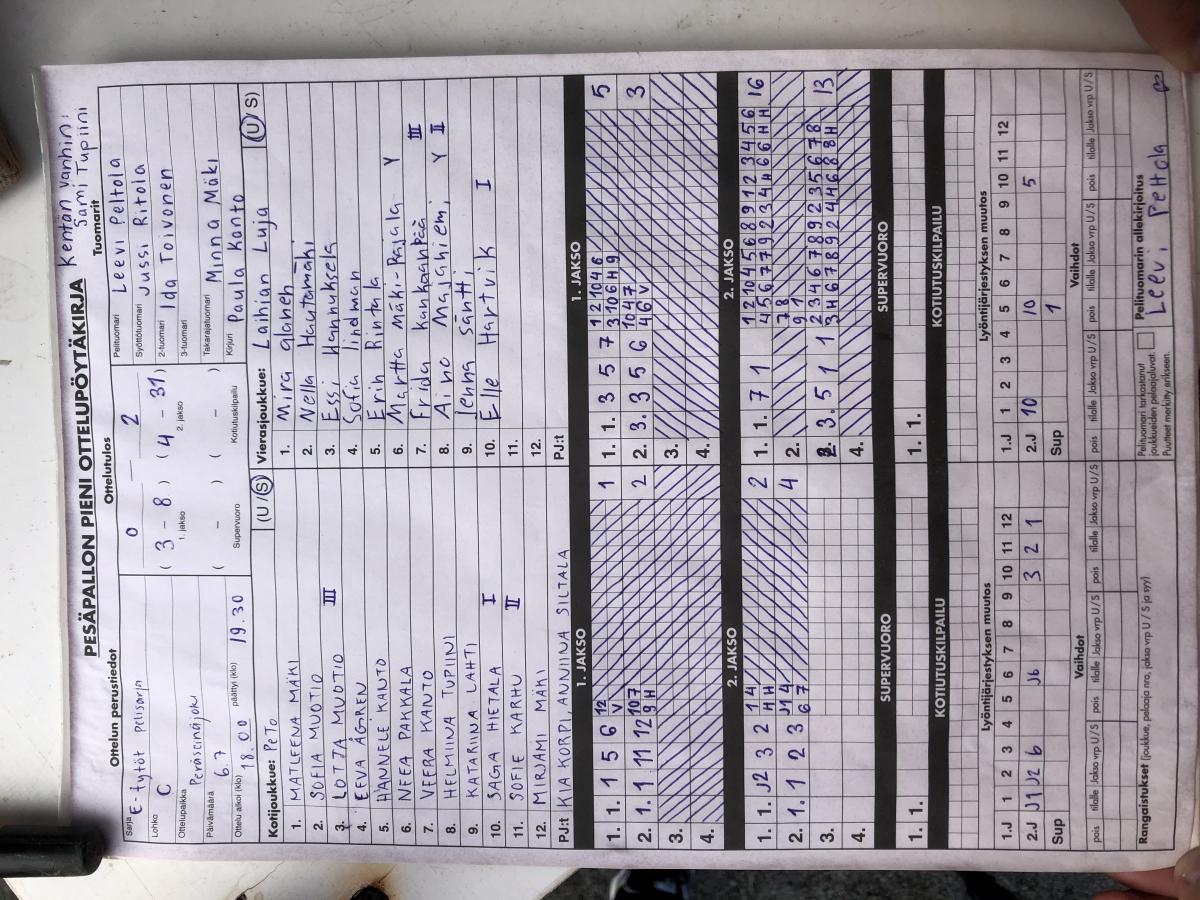 Kentän vanhin:
Sami Tupiini
PESÄPALLON PIENI OTTELUPÖYTÄKIRJA
Ottelun perustiedot
Sarja E-tytöt pelisarja
Lohko C
Ottelupaikka Peräseinäjoki
Päivämäärä 6.7
Ottelu alkoi (klo) 18.00 päättyi (klo) 19.30
Ottelutulos
0 2
( 3 - 8 ) ( 4 - 31 )
1. jakso 2. jakso
( - ) ( - )
Supervuoro Kotiutuskilpailu
Tuomarit
Pelituomari Leevi Peltola
Syöttötuomari Jussi Ritola
2-tuomari Ida Toivonen
3-tuomari
Takarajatuomari Minna Mäki
Kirjuri Paula Kanto
Kotijoukkue: PeTo (U / S)
1. MATLEENA MÄKI
2. SOFIA MUOTIO
3. LOTTA MUOTIO III
4. EEVA ÅGREN
5. HANNELE KANTO
6. NEEA PAKKALA
7. VEERA KANTO
8. HELMIINA TUPIINI
9. KATARIINA LAHTI
10. SAGA HIETALA I
11. SOFIE KARHU II
12. MIRJAMI MÄKI
PJ:t KIA KORPI, ANNIINA SILTALA
Vierasjoukkue: Laihian Luja (U / S)
1. Mira alanen
2. Nella Hautamäki
3. Essi Hannuksela
4. Sofia lindman
5. Erin Rintala
6. Martta Mäki-Rajala Y
7. Frida kankaanpää III
8. Aino Majaniemi Y II
9. lenna säntti
10. Elle Hartvik I
11.
12.
PJ:t
1. JAKSO
1. 1. 1 5 6 12 1
V
2. 1. 11 12 10 7 2
9 H
3.
4.
1. JAKSO
1. 1. 3 5 7 1 2 10 4 6 5
3 10 6 H 9
2. 3. 3 5 6 10 4 7 3
4 6 V
3.
4.
2. JAKSO
1. 1. J2 3 2 1 4 2
H H
2. 1. 1 2 3 J1 4 4
6 7
3.
4.
2. JAKSO
1. 1. 7 1 1 2 10 4 5 6 8 9 1 2 3 4 5 6 16
4 5 6 7 7 9 2 3 4 H 6 6 H H
2. 7 8
9 1
3. 5 1 1 2 3 4 6 7 8 9 2 3 5 6 7 8 13
3 H 6 7 8 9 2 4 4 6 8 8 H
4.
SUPERVUORO
1. 1.
SUPERVUORO
1. 1.
KOTIUTUSKILPAILU
KOTIUTUSKILPAILU
Lyöntijärjestyksen muutos
1.J 1 2 3 4 5 6 7 8 9 10 11 12
2.J J1 J2 6 J6 3 2 1
Sup
Lyöntijärjestyksen muutos
1.J 1 2 3 4 5 6 7 8 9 10 11 12
2.J 10 10 5
Sup 1
Vaihdot
pois tilalle Jakso vrp U / S pois tilalle Jakso vrp U / S pois tilalle Jakso vrp U / S
Vaihdot
pois tilalle Jakso vrp U / S pois tilalle Jakso vrp U / S pois tilalle Jakso vrp U / S
Rangaistukset (joukkue, pelaaja nro, jakso vrp U / S ja syy)
Pelituomari tarkastanut
joukkueiden pelaajaluvat:
Puutteet merkitty erikseen.
Pelituomarin allekirjoitus
Leevi Peltola